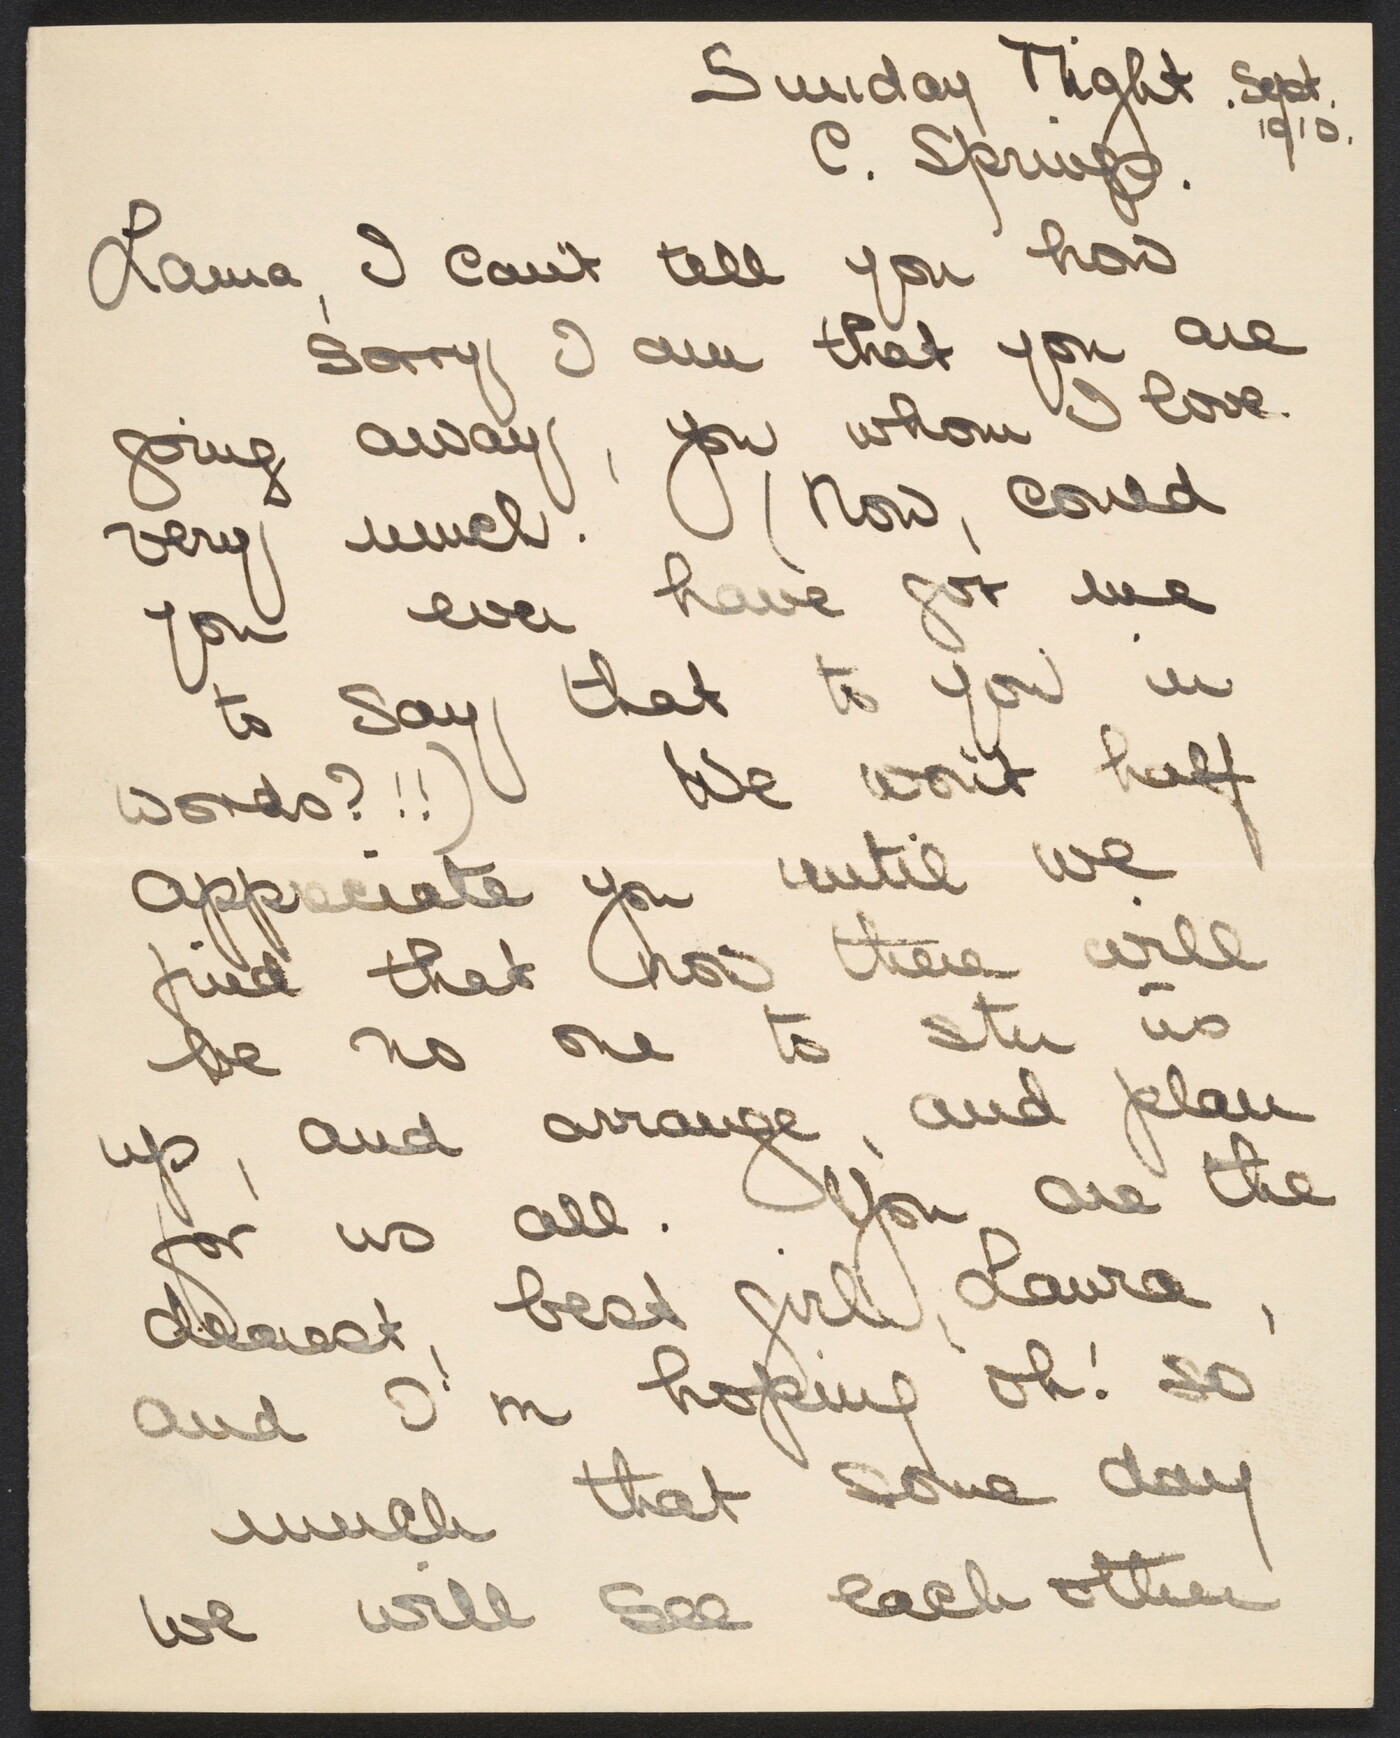 Sunday Night. Sept.
1910.
C. Springs.
Laura, I can't tell you how
sorry I am that you are
going away, you whom I love
very much. (Now, could
you ever have got me
to say that to you in
words?!!) We won't half
appreciate you until we
find that now there will
be no one to stir us
up, and arrange, and plan
for us all. You are the
dearest, best girl, Laura,
and I'm hoping oh! so
much that some day
we will see each other